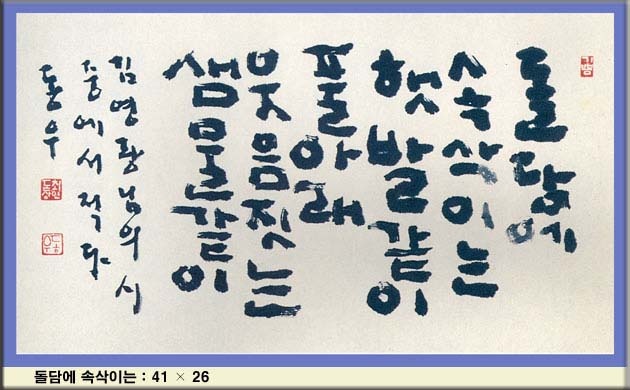 돌담에
속삭이는
햇발같이
풀아래
웃음짓는
샘물같이
김영랑님의 시
중에서 적다
돌담에 속삭이는 : 41 × 26